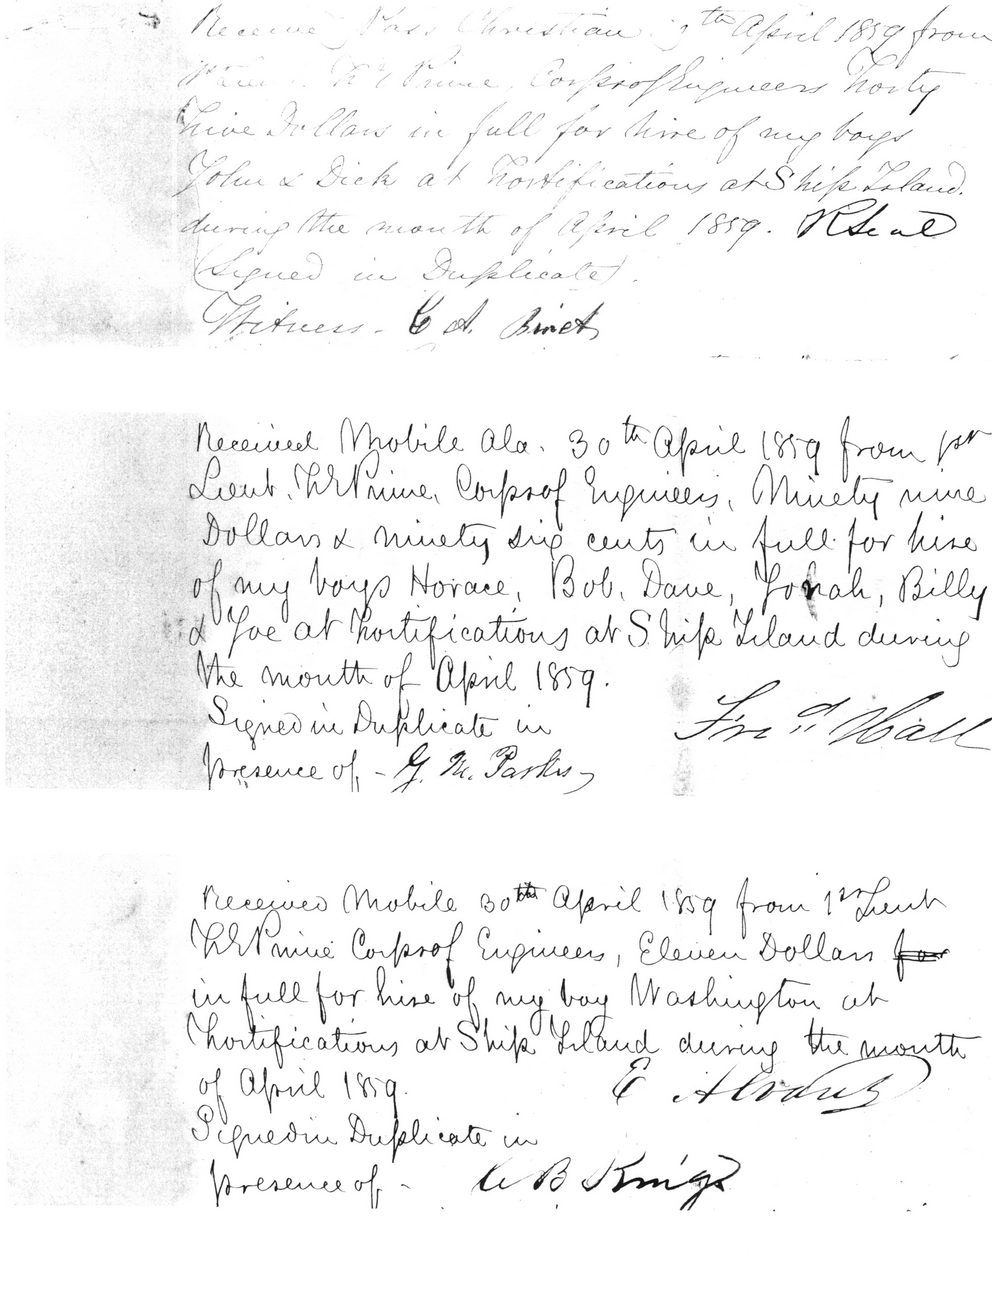 Received Pass Christian April 1859 from
Prime, Corps of Engineers Forty
five Dollars in full for hire of my boys
John & Dick at Fortifications at Ship Island.
during the month of April 1859. R Seal
(Signed in Duplicate).
Witness - C A.
Received Mobile Ala. 30th April 1859 from 1st
Lieut. F E Prime, Corps of Engineers, Ninety nine
Dollars & ninety six cents in full for hire
of my boys Horace, Bob, Dave, Jonah, Billy
& Joe at Fortifications at Ship Island during
the month of April 1859.
Signed in Duplicate in
Fred Hall
presence of - G. M. Parker
Received Mobile 30th April 1859 from 1st Lieut
F E Prime Corps of Engineers, Eleven Dollars for
in full for hire of my boy Washington at
Fortifications at Ship Island during the month
of April 1859. E
Signed in Duplicate in
presence of - B King